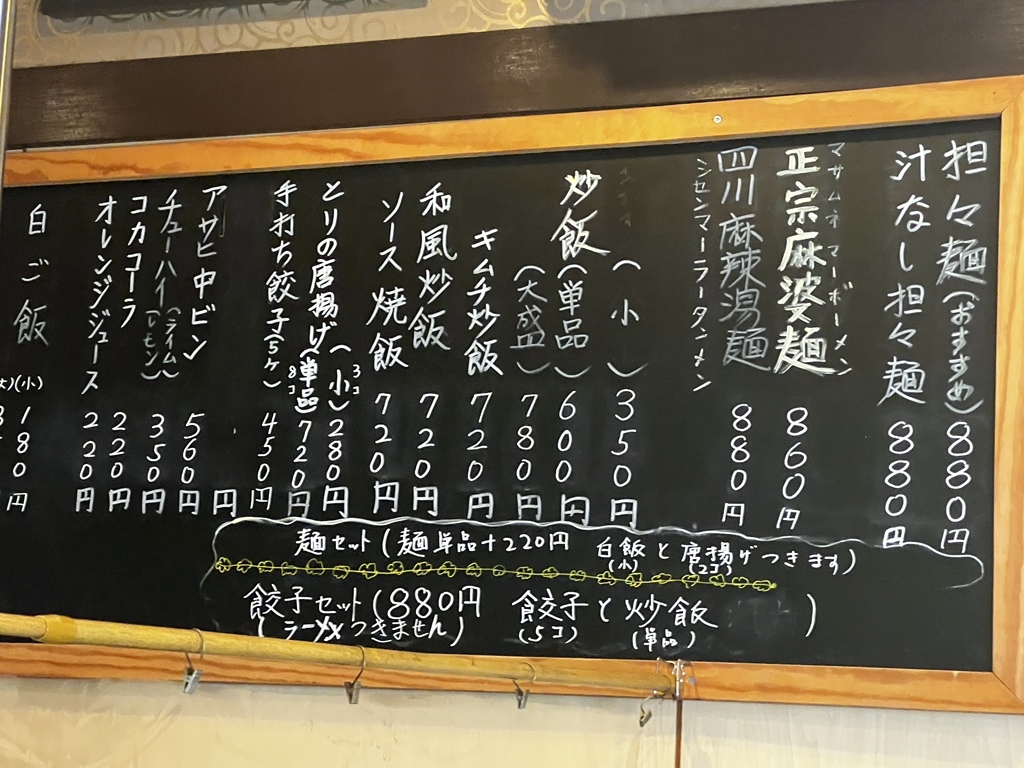 担々麺(おすすめ)880円
汁なし担々麺 880円
マサムネマーボーメン
正宗麻婆麺 860円
四川麻辣湯麺 880円
シセンマーラータンメン
(小) 350円
炒飯(単品) 600円
(大盛) 780円
キムチ炒飯 720円
和風炒飯 720円
ソース焼飯 720円
(小)3コ 280円
とりの唐揚げ(単品)8コ 720円
手打ち餃子(5ケ) 450円
円
アサヒ中ビン 560円
チューハイ(ライム)(レモン) 350円
コカコーラ 220円
オレンジジュース 220円
白ご飯 (小) 180円
麺セット(麺単品+220円 白飯(小)と唐揚げ(2コ)つきます)
餃子セット(880円 餃子(5コ)と炒飯(単品))
(ラーメンつきません)